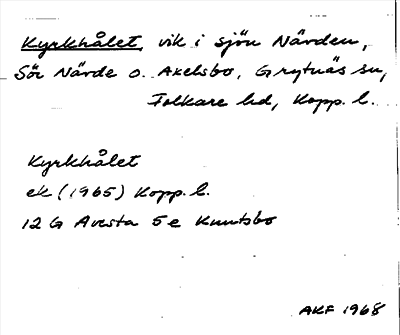 Kyrkhålet, vik i sjön Närden,
Sör Närde o. Axelsbo, Grytnäs sn,
Folkare hd, Kopp. l.
Kyrkhålet
ek (1965) Kopp. l.
12 G Avesta 5e Knutsbo
AKF 1968